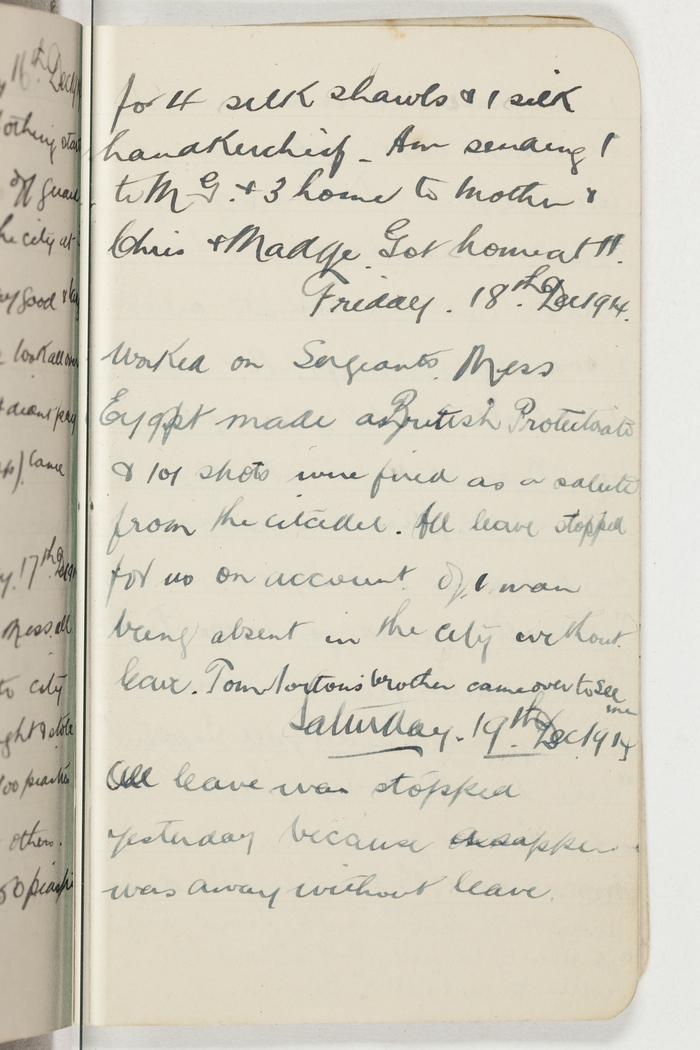 for 4 silk shawls & 1 silk
handkerchief - Am sending 1
to M G. & 3 home to Mother &
Chris & Madge. Got home at 11.
Friday. 18th. Dec 1914.
Worked on Sergeants Mess
Eygpt made a British Protectorate
& 101 shots were fired as a salute
from the citadel. All leave stopped
for us on account of 1 man
being absent in the city without
leave. Tom Nortons brother came over to see
me
Saturday. 19th. Dec 1914
All leave was stopped
yesterday because a sapper
was away without leave.
16th. Dec 19
othing
of guard
he city at
good &
look all over
didnt pay
came
17th. Dec
Mess all
to city
ght &
100 piastres
others.
50